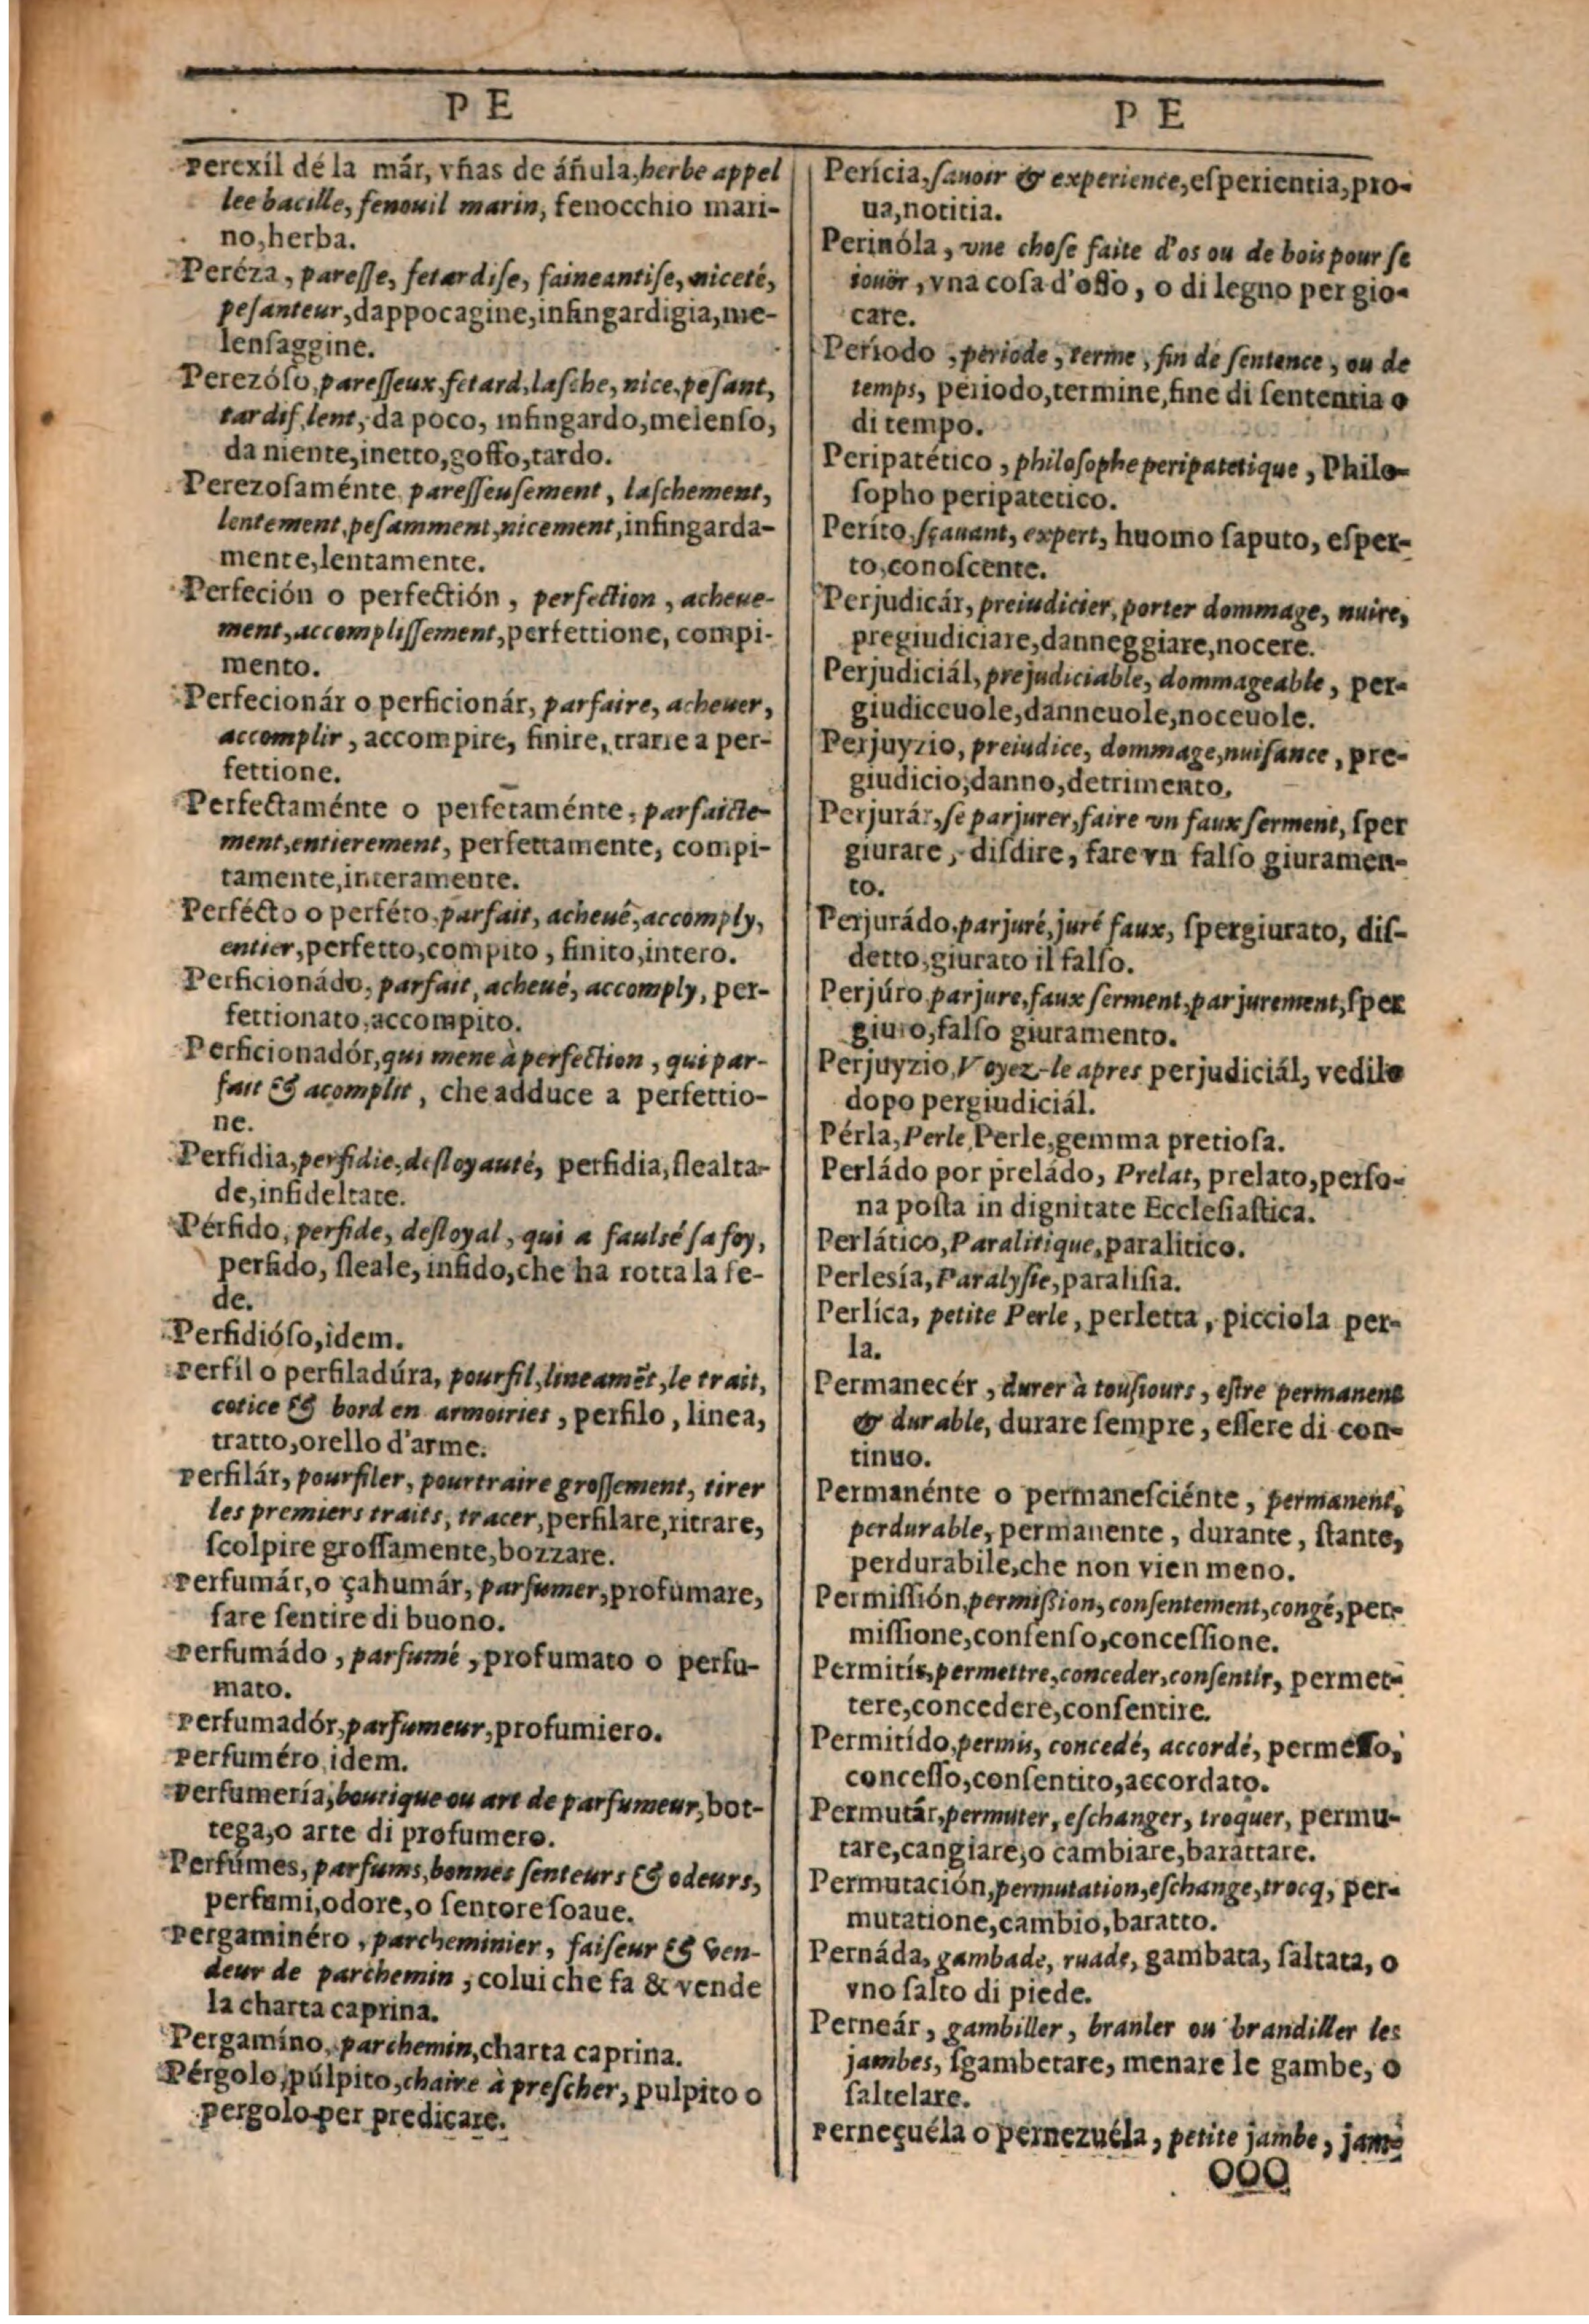 P E
Perexíl dé la már, vñas de áñula, herbe appel
lee bacille, fenouil marin, fenocchio mari-
no, herba.
Peréza, paresſe, fetardiſe, faineantiſe, niceté,
peſanteur, dappocagine, infingardigia, me-
lenſaggine.
Perezóſo, paresſeux, fetard, laſche, nice, peſant,
tardif, lent, da poco, infingardo, melenſo,
da niente, inetto, goffo, tardo.
Perezoſaménte paresſeuſement, laſchement,
lentement, peſamment, nicement, infingarda-
mente, lentamente.
Perfeción o perfectión, perfection, acheue-
ment, accomplisſement, perfettione, compi-
mento.
Perfecionár o perficionár, parfaire, acheuer,
accomplir, accompire, finire, trarre a per-
fettione.
Perfectaménte o perfetaménte, parfaicte-
ment, entierement, perfettamente, compi-
tamente, interamente.
Perfécto o perféto, parfait, acheué, accomply,
entier, perfetto, compito, finito, intero.
Perficionádo, parfait, acheué, accomply, per-
fettionato, accompito.
Perficionadór, qui mene à perfection, qui par-
fait & acomplit, che adduce a perfettio-
ne.
Perfidia, perfidie, deſloyauté, perfidia, ſlealta-
de, infideltate.
Pérfido, perfide, deſloyal, qui a faulsé ſa foy,
perfido, ſleale, infido, che ha rotta la fe-
de.
Perfidióſo, idem.
Perfíl o perfiladúra, pourfil, lineamẽt, le trait,
cotice & bord en armoiries, perfilo, linea,
tratto, orello d'arme.
Perfilár, pourfiler, pourtraire grosſement, tirer
les premiers traits, tracer, perfilare, ritrare,
ſcolpire groſſamente, bozzare.
Perfumár, o çahumár, parfumer, profumare,
fare ſentire di buono.
Perfumádo, parfumé, profumato o perfu-
mato.
Perfumadór, parfumeur, profumiero.
Perfuméro, idem.
Perfumería, boutique ou art de parfumeur, bot-
tega, o arte di profumero.
Perfúmes, parfums, bonnes ſenteurs & odeurs,
perfumi, odore, o ſentore ſoaue.
Pergaminéro, parcheminier, faiſeur & ven-
deur de parchemin, colui che fa & vende
la charta caprina.
Pergamíno, parchemin, charta caprina.
Pérgolo, púlpito, chaire à preſcher, pulpito o
pergolo per predicare.
P E
Perícia, ſauoir & experience, eſperientia, pro-
ua, notitia.
Perinóla, vne choſe faite d'os ou de bois pour ſe
iouër, vna coſa d'oſſo, o di legno per gio-
care.
Período, periode, terme, fin de ſentence, ou de
temps, periodo, termine, fine di ſententia o
di tempo.
Peripatético, philoſophe peripatetique, Philo-
ſopho peripatetico.
Períto, ſçauant, expert, huomo ſaputo, eſper-
to, conoſcente.
Perjudicár, preiudicier, porter dommage, nuire,
pregiudiciare, danneggiare, nocere.
Perjudiciál, prejudiciable, dommageable, per-
giudiceuole, danneuole, noceuole.
Perjuyzio, preiudice, dommage, nuiſance, pre-
giudicio, danno, detrimento.
Perjurár, ſe parjurer, faire vn faux ſerment, ſper
giurare, diſdire, fare vn falſo giuramen-
to.
Perjurádo, parjuré, juré faux, ſpergiurato, diſ-
detto, giurato il falſo.
Perjúro parjure, faux ſerment, parjurement, ſper
giuro, falſo giuramento.
Perjuyzio, Voyez-le apres perjudiciál, vedilo
dopo pergiudiciál.
Pérla, Perle, Perle, gemma pretioſa.
Perládo por preládo, Prelat, prelato, perſo-
na poſta in dignitate Eccleſiaſtica.
Perlático, Paralitique, paralitico.
Perlesía, Paralyſie, paraliſia.
Perlíca, petite Perle, perletta, picciola per-
la.
Permanecér, durer à touſiours, eſtre permanent
& durable, durare ſempre, eſſere di con-
tinuo.
Permanénte o permaneſciénte, permanent,
perdurable, permanente, durante, ſtante,
perdurabile, che non vien meno.
Permiſſión, permiſsion, conſentement, congé, per-
miſſione, conſenſo, conceſſione.
Permitír, permettre, conceder, conſentir, permet-
tere, concedere, conſentire.
Permitído, permis, concedé, accordé, permeſſo,
conceſſo, conſentito, accordato.
Permutár, permuter, eſchanger, troquer, permu-
tare, cangiare, o cambiare, barattare.
Permutación, permutation, eſchange, trocq, per-
mutatione, cambio, baratto.
Pernáda, gambade, ruade, gambata, ſaltata, o
vno ſalto di piede.
Perneár, gambiller, branler ou brandiller les
jambes, ſgambetare, menare le gambe, o
ſaltelare.
Perneçuéla o pernezuéla, petite jambe, jam-
OOO